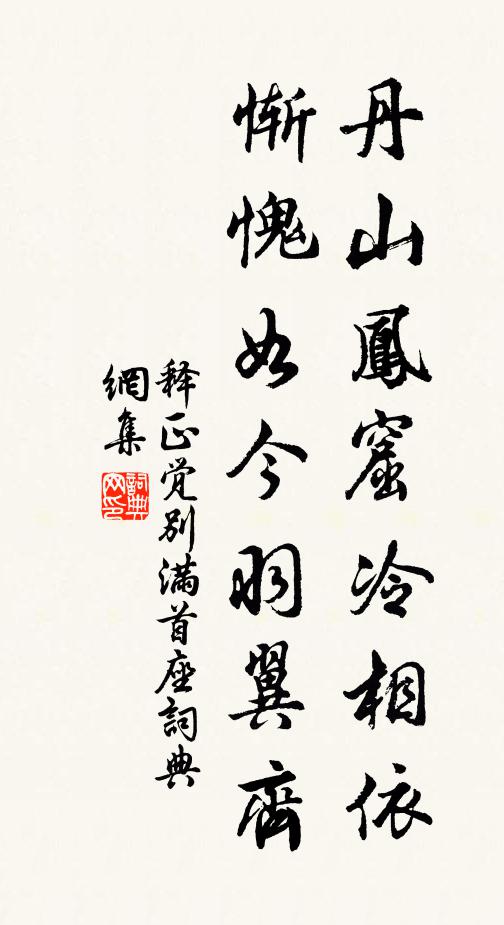 丹山鳳窟冷相依
慚愧如今羽翼齊
释正覺別滿首座詞典
網集
詞典网印